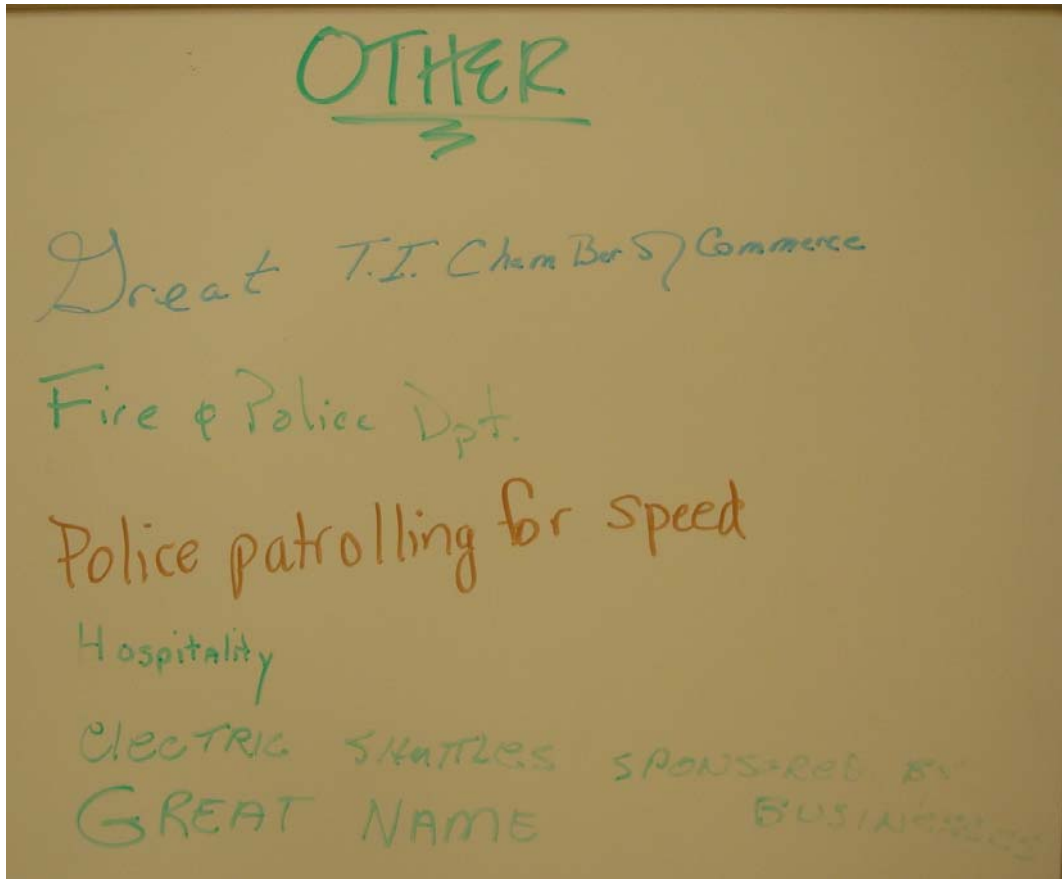 OTHER
Great T.I. Chamber of Commerce
Fire & Police Dpt.
Police patrolling for speed
Hospitality
Electric Shuttles SPONSORED BY
BUSINESSES
GREAT NAME